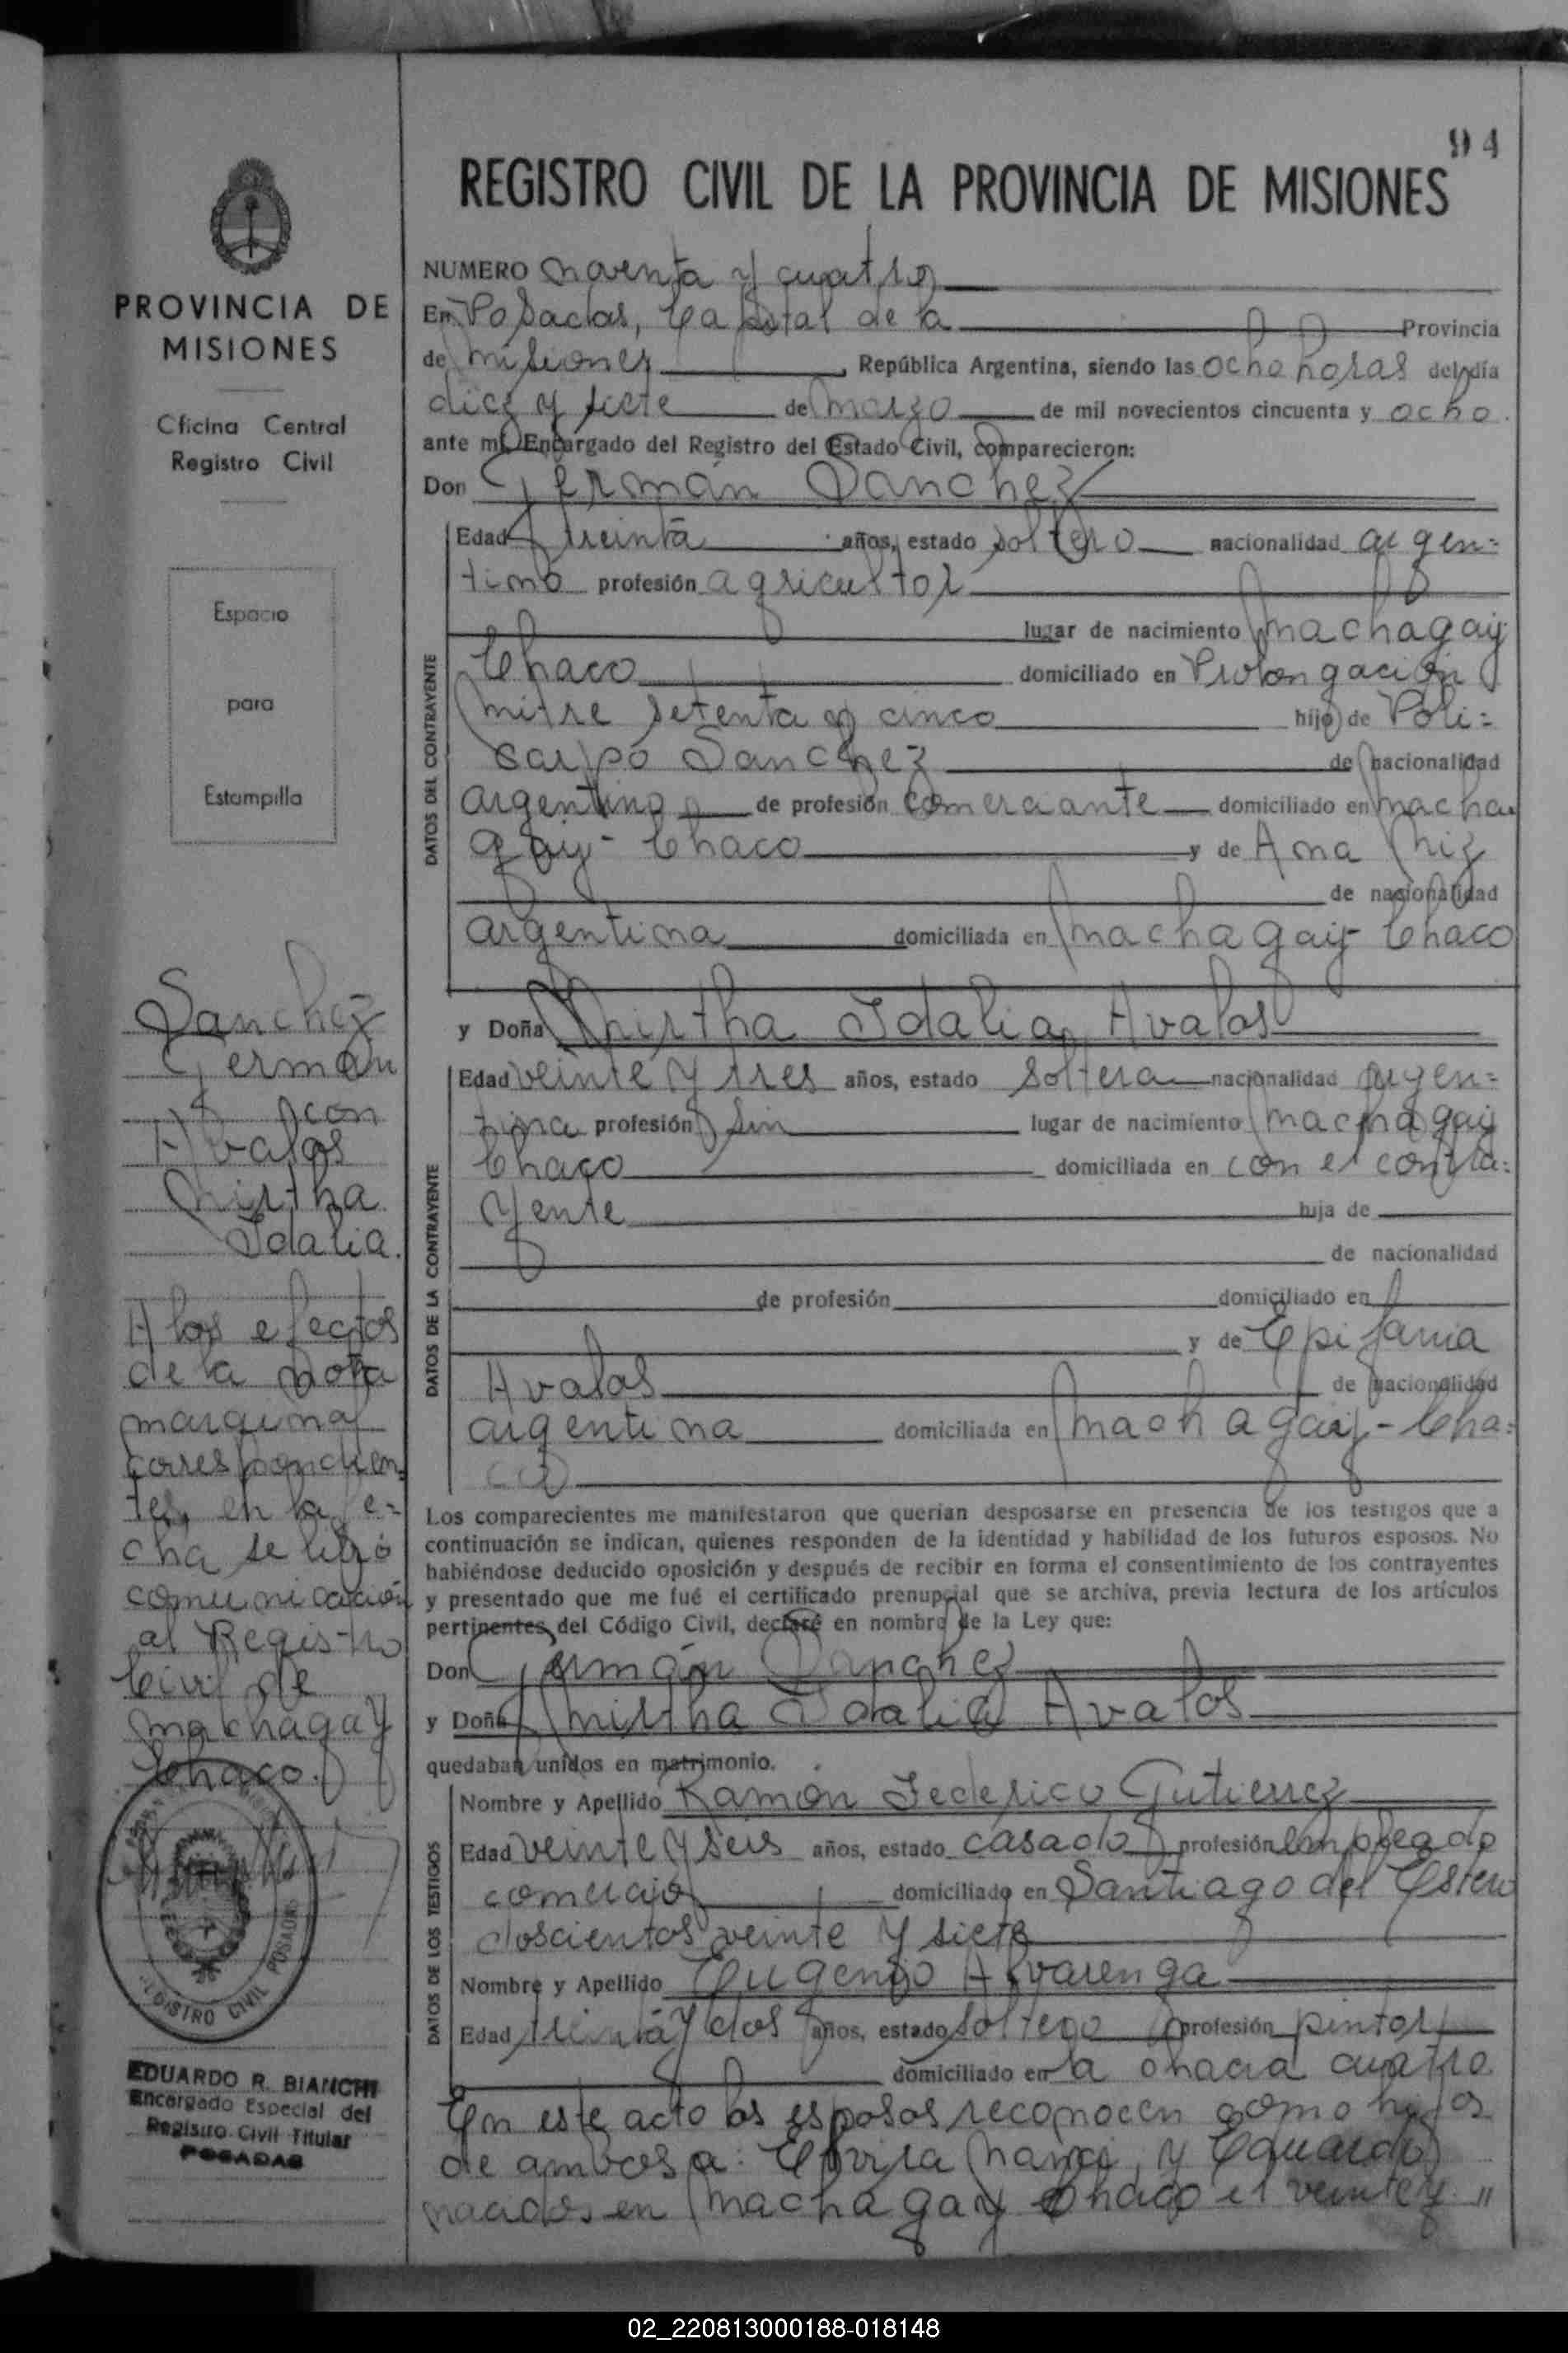 94
REGISTRO CIVIL DE LA PROVINCIA DE MISIONES
PROVINCIA DE
MISIONES
Oficina Central
Registro Civil
Espacio
para
Estampilla
Sanchez
Germán
con
Avalos
Mirtha
Idalia.
A los efectos
de la nota
marginal
correspondien-
tes, en la fe-
cha se libró
comunicación
al Registro
Civil de
Machagay
Chaco.
REGISTRO CIVIL POSADAS
EDUARDO R. BIANCHI
Encargado Especial del
Registro Civil Titular
POSADAS
NUMERO noventa y cuatro
En Posadas, Capital de la Provincia
de Misiones, República Argentina, siendo las ocho horas del día
diez y siete de Marzo de mil novecientos cincuenta y ocho.
ante mí, Encargado del Registro del Estado Civil, comparecieron:
Don Germán Sanchez
DATOS DEL CONTRAYENTE
Edad treinta años, estado soltero nacionalidad argen=
tino profesión agricultor
lugar de nacimiento Machagay
Chaco domiciliado en Prolongación
Mitre setenta y cinco hijo de Poli=
carpo Sanchez de nacionalidad
argentino de profesión comerciante domiciliado en Macha
gay- Chaco y de Ana
de nacionalidad
argentina domiciliada en Machagay- Chaco
y Doña Mirtha Idalia Avalos
DATOS DE LA CONTRAYENTE
Edad veinte y tres años, estado soltera nacionalidad argen=
tina profesión sin lugar de nacimiento Machagay
Chaco domiciliada en con el contra=
yente hija de
de nacionalidad
de profesión domiciliado en
y de Epifania
Avalos de nacionalidad
argentina domiciliada en Machagay - Cha=
co
Los comparecientes me manifestaron que querían desposarse en presencia de los testigos que a
continuación se indican, quienes responden de la identidad y habilidad de los futuros esposos. No
habiéndose deducido oposición y después de recibir en forma el consentimiento de los contrayentes
y presentado que me fué el certificado prenupcial que se archiva, previa lectura de los artículos
pertinentes del Código Civil, declaré en nombre de la Ley que:
Don Germán Sanchez
y Doña Mirtha Idalia Avalos
quedaban unidos en matrimonio.
DATOS DE LOS TESTIGOS
Nombre y Apellido Ramón Federico Gutierrez
Edad veinte y seis años, estado casado profesión empleado
comercio domiciliado en Santiago del Estero
doscientos veinte y siete
Nombre y Apellido Eugenio Alvarenga
Edad treinta y dos años, estado soltero profesión pintor
domiciliado en la chacra cuatro
En este acto los esposos reconocen como hijos
de ambos a: Elvira y Eduardo
nacidos en Machagay Chaco el veinte y "
02_220813000188-018148